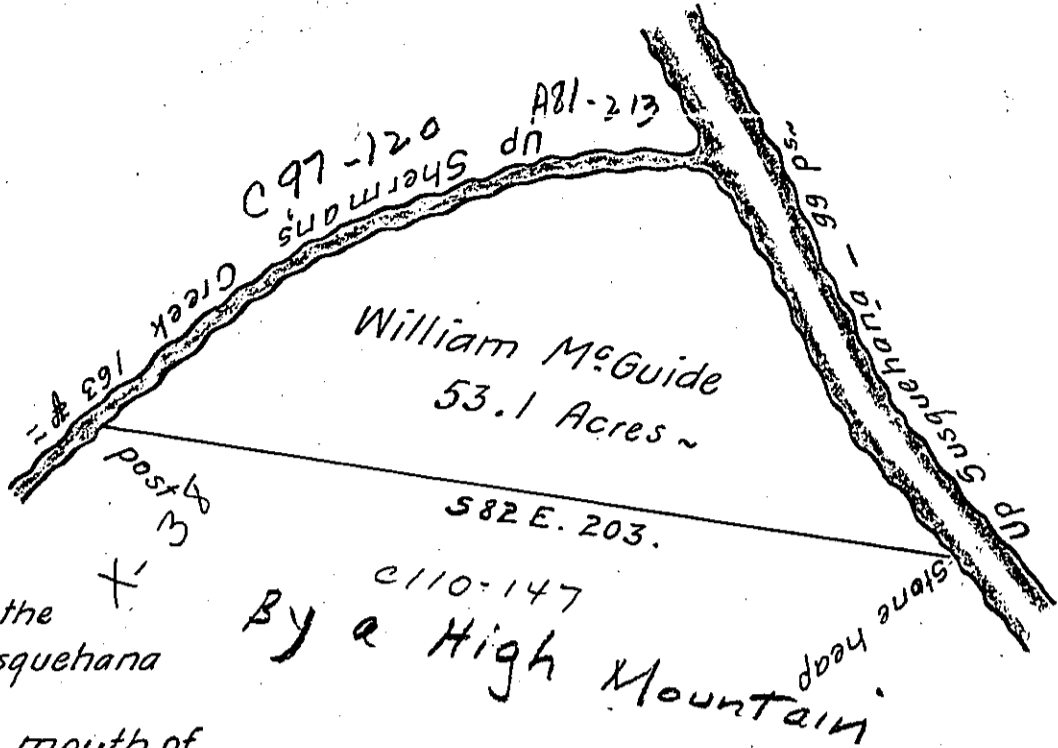 A81-213
C97-120
Up Sherman's Creek 163 ps~
Up Susquehana - 99 ps~
William McGuide
53.1 Acres~
post
S82E. 203.
Stone heap
C110-147
By a High Mountain
the
squehana
mouth of